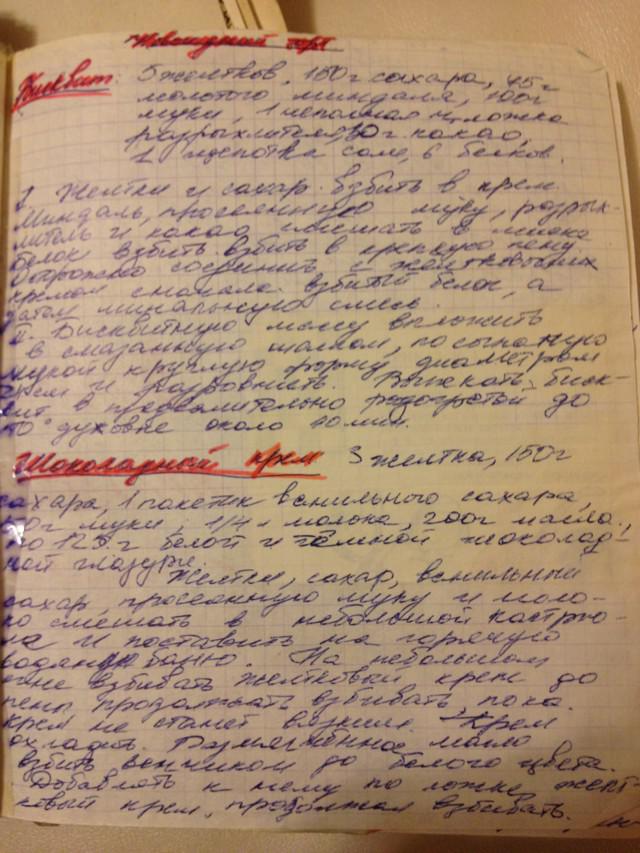 Новогодний торт
Бисквит: 5 желтков, 150г сахара, 75г
молотого миндаля, 100г
муки, 1 неполная ч. ложка
разрыхлителя, 10г какао,
1 щепотка соли, 6 белков.
I Желтки и сахар взбить в крем.
Миндаль, просеянную муку, разрых-
литель и какао смешать в миске
белок взбить взбить в крепкую пену
Осторожно соединить с желтковым
кремом сначала взбитый белок, а
затем миндальную смесь.
II. Бисквитную массу выложить
в смазанную маслом, посыпанную
мукой круглую форму диаметром
см и разровнять. Выпекать биск-
вит в предварительно разогретой до
° духовке около мин.
Шоколадный крем 3 желтка, 150г
сахара, 1 пакетик ванильного сахара,
г муки, 1/4 л молока, 200г масла,
по 125 г белой и тёмной шоколад-
ной глазури.
Желтки, сахар, ванильный
сахар, просеянную муку и моло-
ко смешать в небольшой кастрю-
ле и поставить на горячую
водяную баню. На небольшом
огне взбивать желтковый крем до
пены продолжать взбивать, пока
крем не станет вязким. Крем
охладить. Размягчённое масло
взбить венчиком до белого цвета.
Добавлять к нему по ложке желт-
ковый крем, продолжая взбивать.